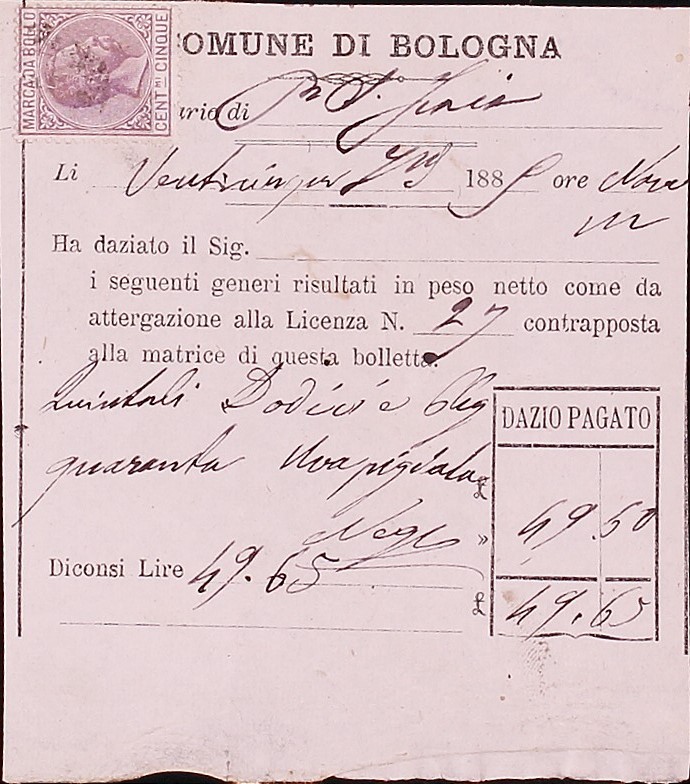 MARCA DA BOLLO
CENT.MI CINQUE
COMUNE DI BOLOGNA
ario di
Li Venticinque 188 ore Nove
Ha daziato il Sig.
i seguenti generi risultati in peso netto come da
attergazione alla Licenza N. 27 contrapposta
alla matrice di questa bolletta.
Quintali Dodici e Kg
quaranta Uva pigiata
DAZIO PAGATO
£
» 49.50
Diconsi Lire 49.65
£ 49.65